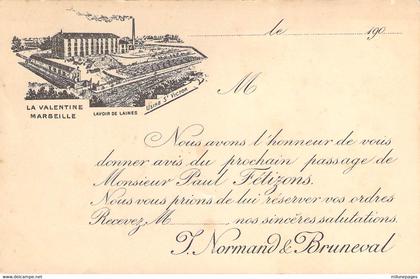 le 190
LA VALENTINE
MARSEILLE
LAVOIR DE LAINES
USINE ST VICTOR
M
Nous avons l'honneur de vous
donner avis du prochain passage de
Monsieur Paul Félizons.
Nous vous prions de lui réserver vos ordres
Recevez M nos sincères salutations.
J. Normand & Bruneval